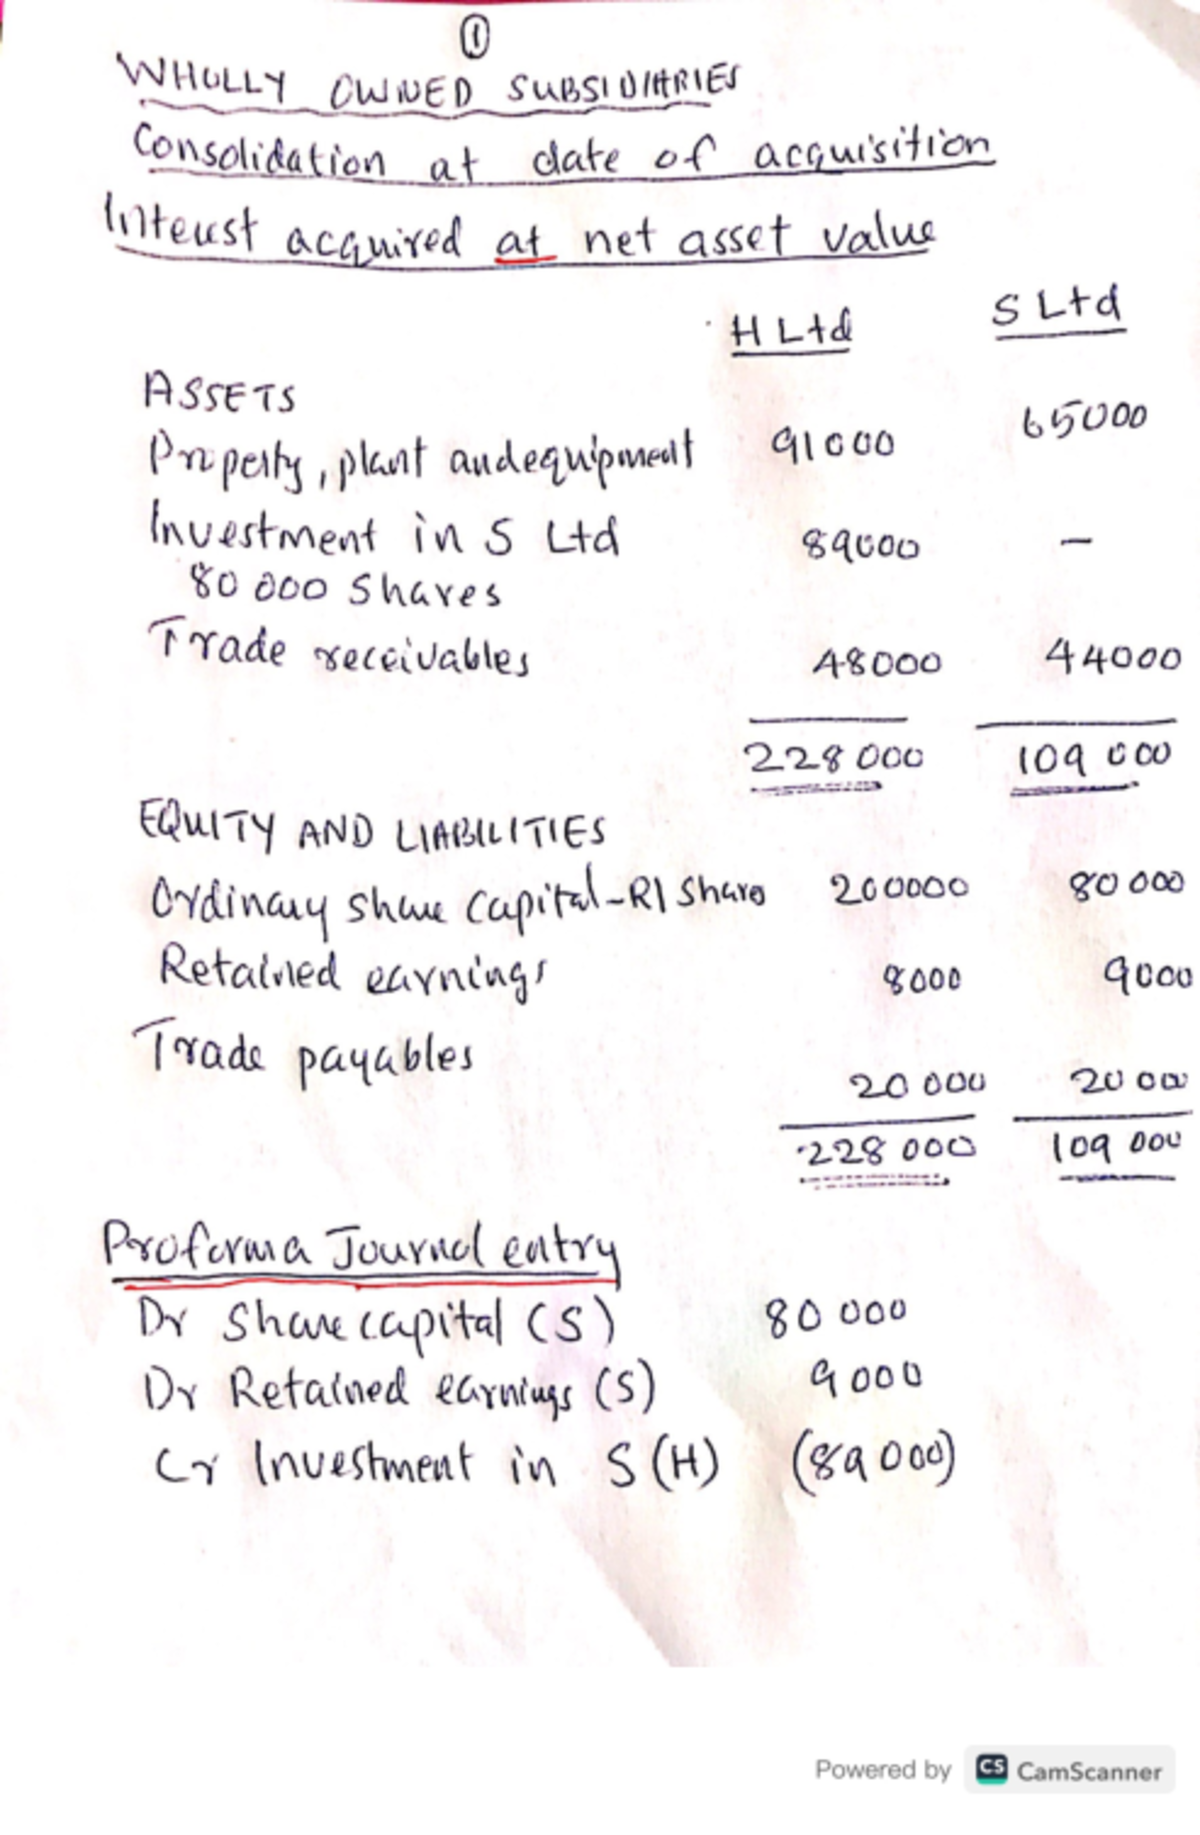 ①
WHOLLY OWNED SUBSIDIARIES
Consolidation at date of acquisition
Interest acquired at net asset value
H Ltd S Ltd
ASSETS
Property, plant and equipment 91000 65000
Investment in S Ltd 89000 –
80 000 Shares
Trade receivables 48000 44000
228 000 109 000
EQUITY AND LIABILITIES
Ordinary share capital-R1 Share 200000 80 000
Retained earnings 8000 9000
Trade payables
20 000 20 000
228 000 109 000
Proforma Journal entry
Dr Share capital (S) 80 000
Dr Retained earnings (S) 9000
Cr Investment in S (H) (89 000)
Powered by CS CamScanner